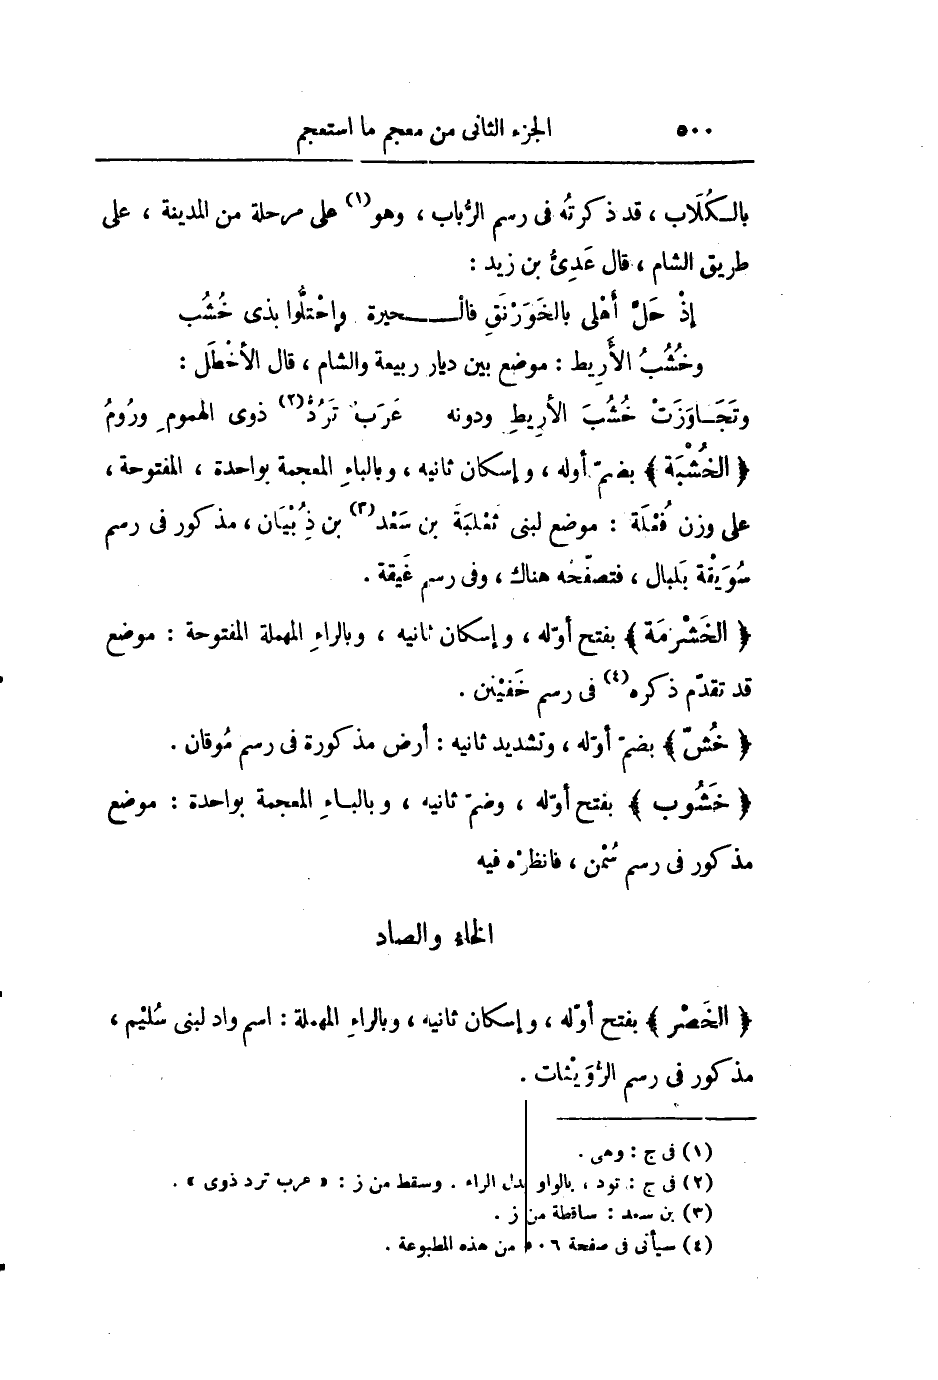 ٥٠٠ الجزء الثانى من معجم ما استعجم
بالكُلَاب ، قد ذكرتُه فى رسم الرُّباب ، وهو(١) على مرحلة من المدينة ، على
طريق الشام ، قال عَدِىُّ بن زيد :
إذْ حَلَّ أَهْلى بالخَوَرْنَقِ فالْـحيرة واحْتلُّوا بذى خُشُب
وخُشُبُ الأَرِيط : موضع بين ديار ربيعة والشام ، قال الأخْطَل :
وتَجَاوَزَتْ خُشُبَ الأَرِيطِ ودونه عَرَبٌ تَرُدُّ(٢) ذوى الهموم ورُومُ
﴿ الخُشْبَة ﴾ بضمّ أوله ، وإسكان ثانيه ، وبالباءِ المعجمة بواحدة ، المفتوحة ،
على وزن فُعْلَة : موضع لبنى ثَعْلَبَةَ بن سَعْد(٣) بن ذُِبْيَان ، مذكور فى رسم
سُوَيْقة بَلبال ، فتصفّحْه هناك ، وفى رسم غَيقة .
﴿ الخَشْرَمَة ﴾ بفتح أوّله ، وإسكان ثانيه ، وبالراءِ المهملة المفتوحة : موضع
قد تقدّم ذكره(٤) فى رسم خَفَيْنن .
﴿ خُشّ ﴾ بضمّ أوّله ، وتشديد ثانيه : أرض مذكورة فى رسم مُوقان .
﴿ خَشُوب ﴾ بفتح أوّله ، وضمّ ثانيه ، وبالباءِ المعجمة بواحدة : موضع
مذكور فى رسم سُمْن ، فانظرْه فيه
الخاء والصاد
﴿ الخَصْر ﴾ بفتح أوّله ، وإسكان ثانيه ، وبالراءِ المهملة : اسم واد لبنى سُلَيْم ،
مذكور فى رسم الرُّوَيْثات .
(١) فى ج : وهى .
(٢) فى ج : تود ، بالواو بدل الراء . وسقط من ز : « عرب ترد ذوى » .
(٣) بن سعد : ساقطة من ز .
(٤) سيأتى فى صفحة ٥٠٦ من هذه المطبوعة .